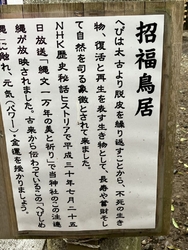 招福鳥居
へびは太古より脱皮を繰り返すことから、不死の生き
物、復活と再生を表す生き物として、長寿や蓄財そし
て自然を司る象徴とされて来ました。
NHK歴史秘話ヒストリアで平成三十年七月二十五
日放送「縄文一万年の美と祈り」で当神社のこの注連
縄が放映されました。古来から伝わっているこのへびしめ
縄に触れ、元気(パワー)・金運を授かりましょう。